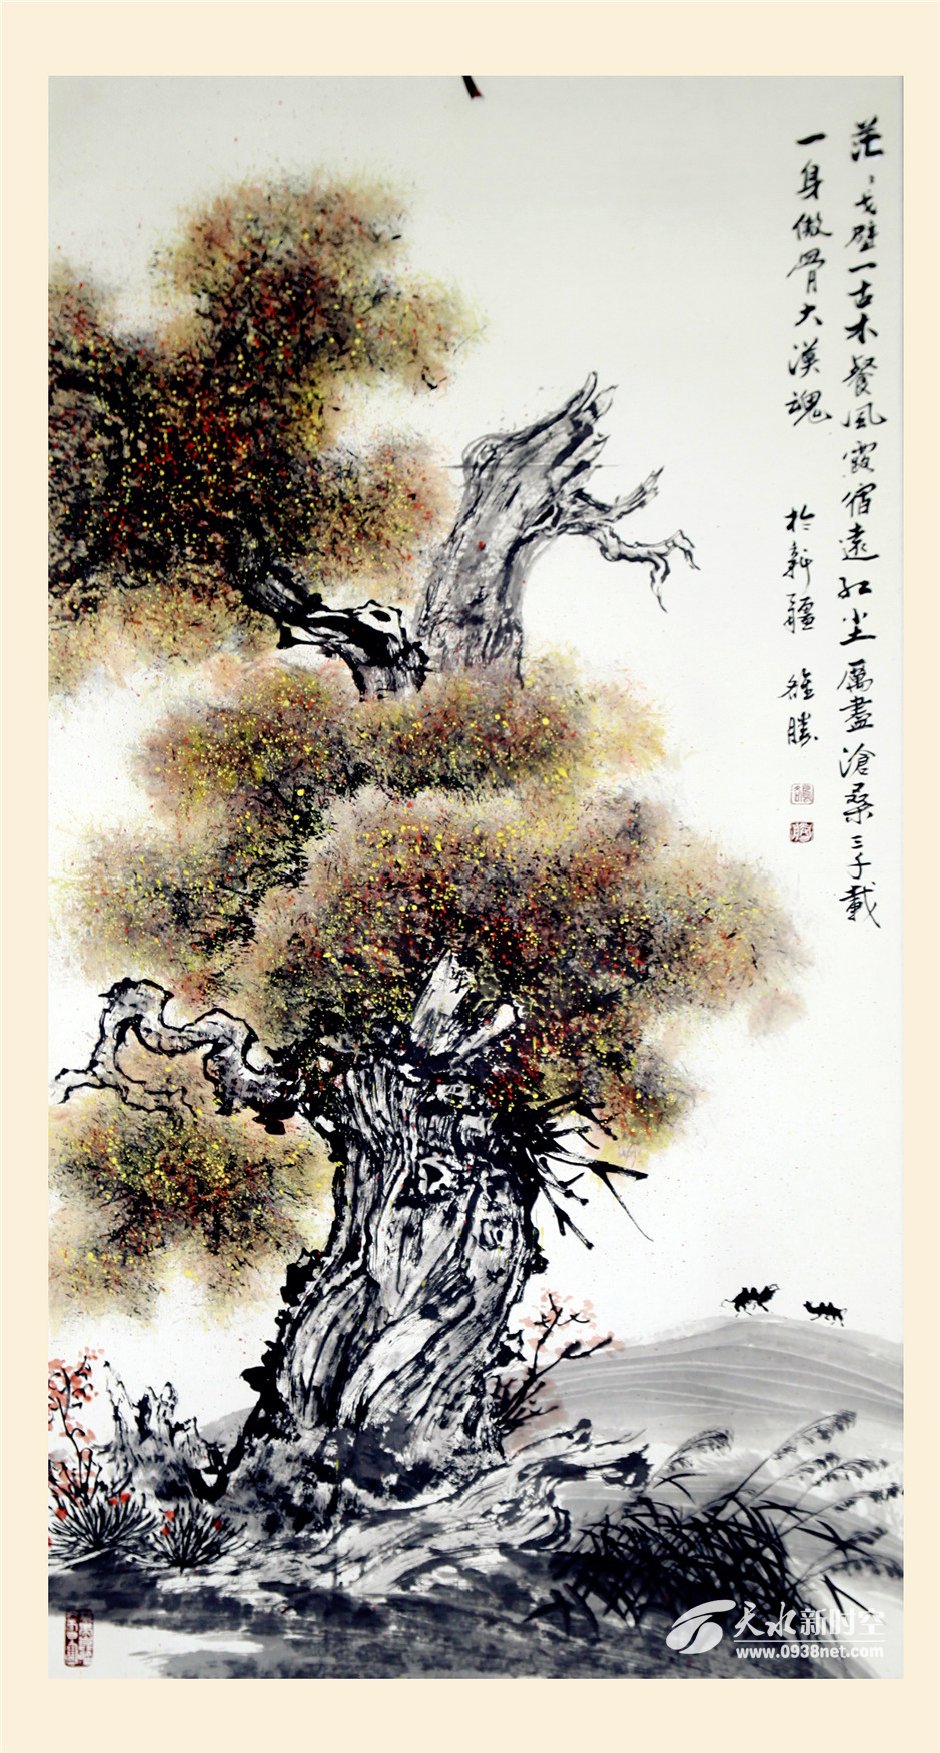 茫〻戈壁一古木餐風霞宿遠紅尘厲盡滄桑三千載
一身傲骨大漠魂
於新疆
雄勝
天水新时空
www.0938net.com